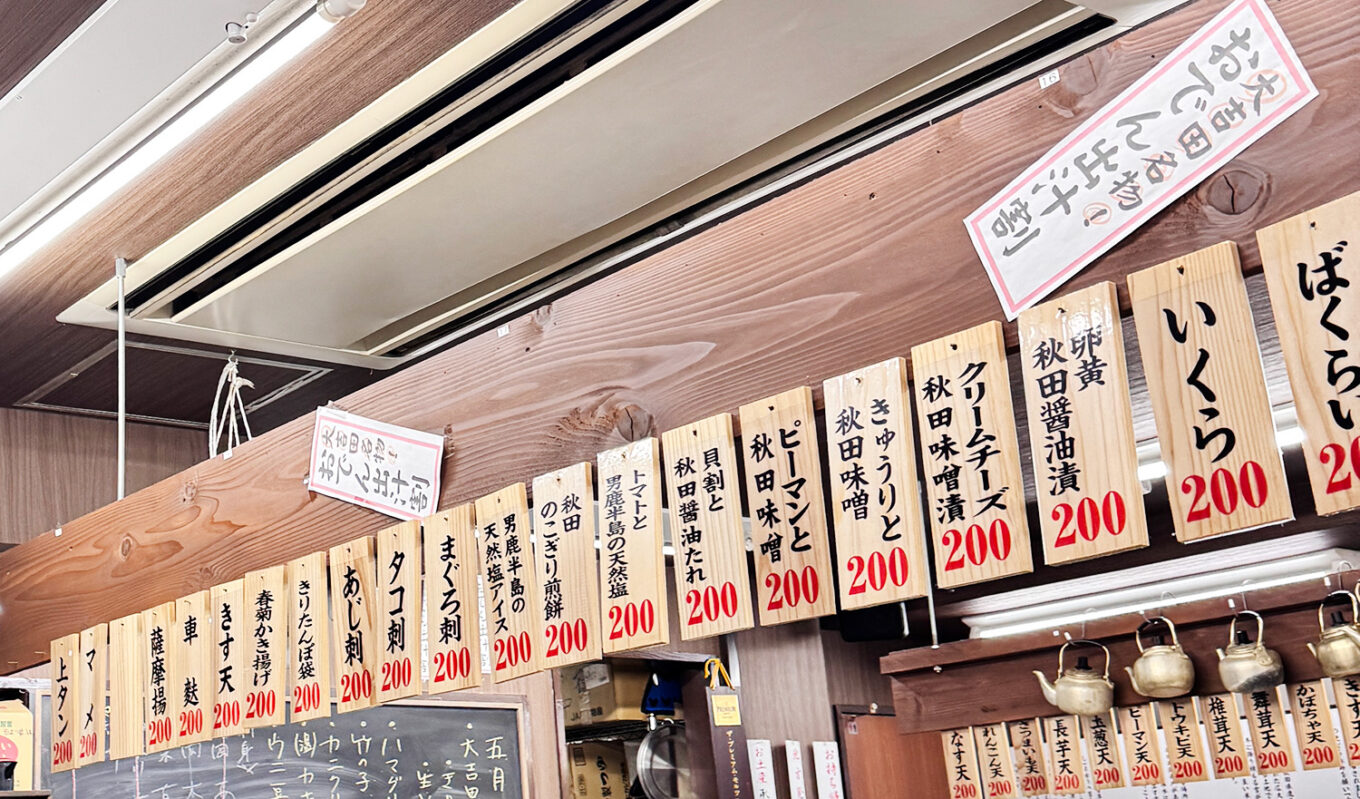 大吉田名物!
おでん出汁割
16
ばくらい
200
いくら
200
卵黄
秋田醤油漬
200
クリームチーズ
秋田味噌漬
200
きゅうりと
秋田味噌
200
ピーマンと
秋田味噌
200
貝割と
秋田醤油たれ
200
トマトと
男鹿半島の天然塩
200
秋田
のこぎり煎餅
200
男鹿半島の
天然塩アイス
200
まぐろ刺
200
タコ刺
200
あじ刺
200
きりたんぽ袋
200
春菊かき揚げ
200
きす天
200
車麩
200
薩摩揚
200
マメ
200
上タン
200
大吉田名物!
おでん出汁割
きす天
かぼちゃ天
200
舞茸天
200
椎茸天
200
トウキビ天
200
ピーマン天
200
玉葱天
200
長芋天
200
さつまい天
200
れんこん天
200
なす天
200
五月
大吉田
ハマグリ
竹の子
カニク
ウニ
お土産
お持ち帰
PREMIUM
ザ・プレミアム・モルツ